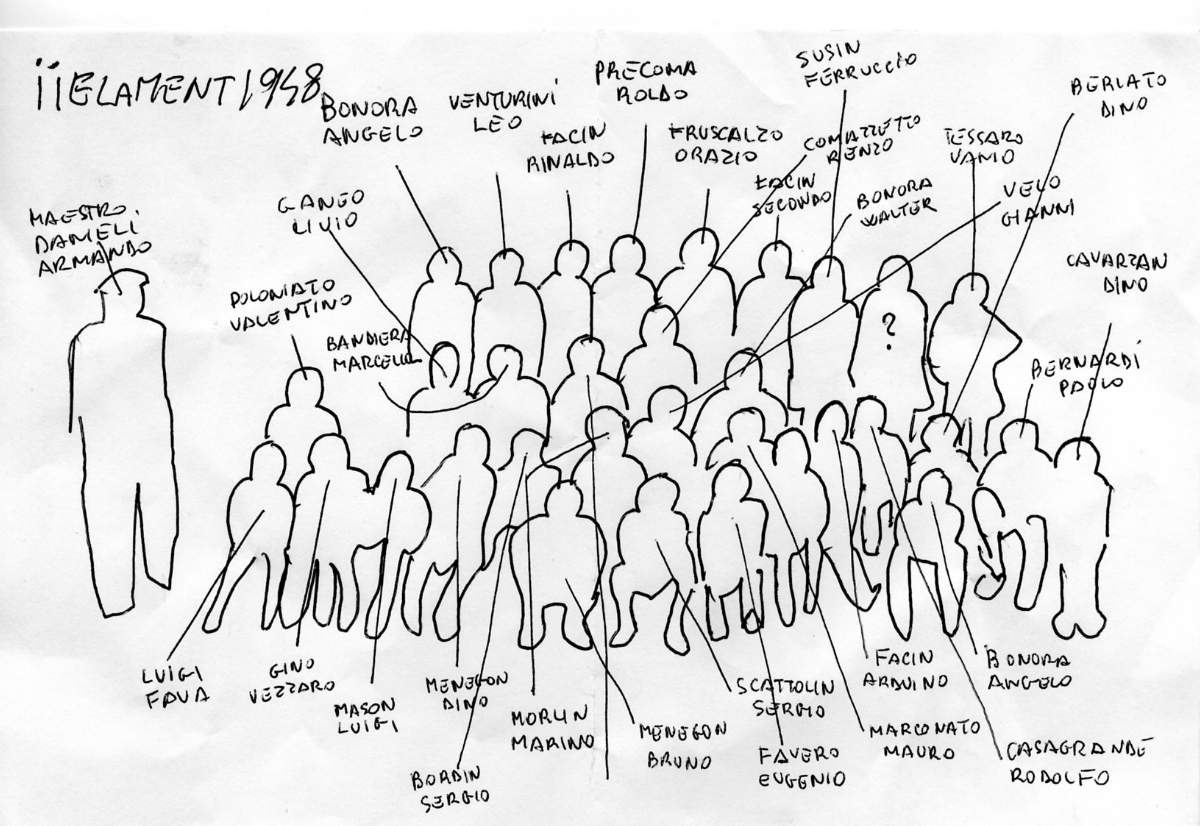 iiELAMENT 1948
BONORA
ANGELO
VENTURINI
LEO
FACIN
RINALDO
PRECOMA
ROLDO
FRUSCALZO
ORAZIO
SUSIN
FERRUCCIO
COMAZZETTO
RENZO
FACIN
SECONDO
BONORA
WALTER
TESSARO
VAMO
BERLATO
DINO
VELO
GIANNI
CAVARZAN
DINO
MAESTRO
DAMELI
ARMANDO
GANEO
LIVIO
POLONIATO
VALENTINO
BANDIERA
MARCELLO
?
BERNARDI
PAOLO
LUIGI
FAVA
GINO
VEZZARO
MASON
LUIGI
MENEGON
DINO
BORDIN
SERGIO
MORLIN
MARINO
MENEGON
BRUNO
SCATTOLIN
SERGIO
FAVERO
EUGENIO
FACIN
ARDUINO
MARCONATO
MAURO
BONORA
ANGELO
CASAGRANDE
RODOLFO